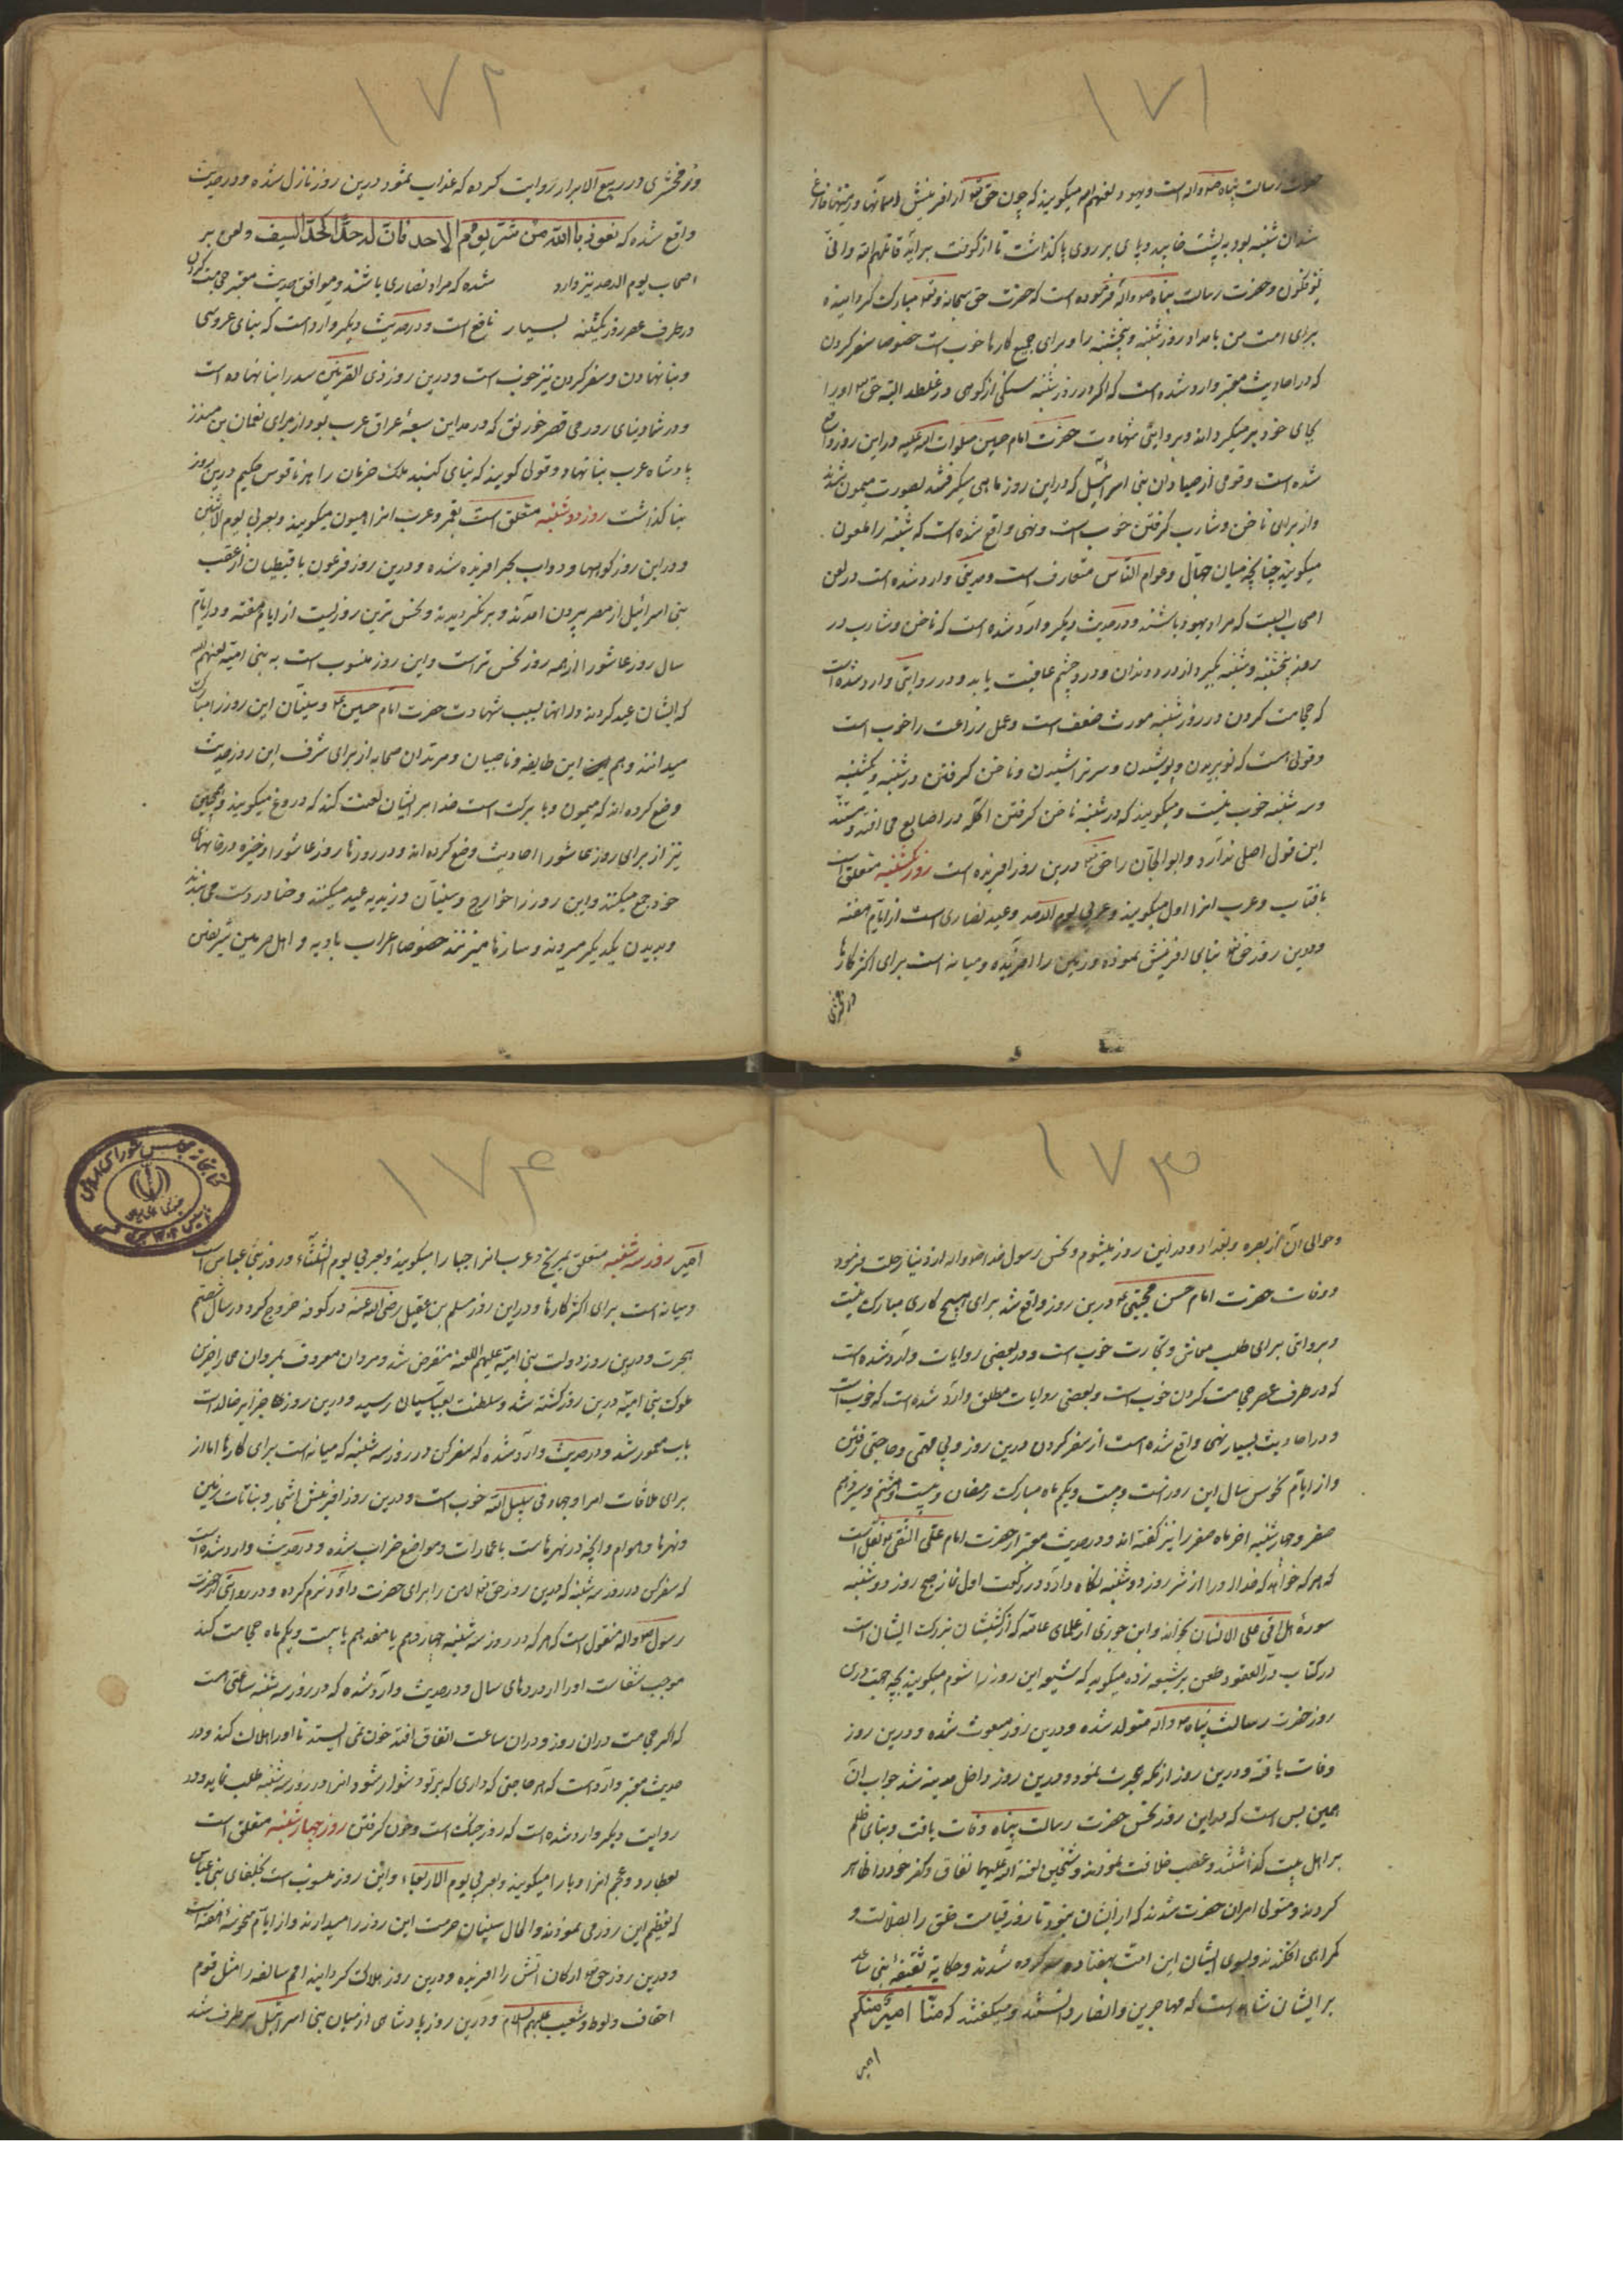 ۱۷۱
حضرت رسالت پناه ص واله است ویهود لعنهم اله میکویند که چون حق تع از آفرینش اسمانها و زمینها فارغ
شد ان شنبه بود به پشت خابید و پای بر روی پا کذاشت تا از کوفت براید قاتلهم الله وانی
یؤفکون و حضرت رسالت پناه ص واله فرموده است که حضرت حق سبحانه وتع مبارک کردانیده
برای امت من بامداد روز شنبه و پنجشنبه را و برای جمیع کارها خوب است خصوصا سفر کردن
که در احادیث معتبر وارد شده است که اکر در روز شنبه سنکی از کوهی در غلطد البته حق تع او را
بجای خود بر میکرداند و بروایتی شهادت حضرت امام حسین صلوات اله علیه در این روز واقع
شده است و قومی از صیادان بنی اسرائیل که در این روز ماهی میکرفتند بصورت میمون شدند
و از برای ناخن و شارب کرفتن خوب است و نهی واقع شده است که شنبه را ملعون
میکویند چنانچه میان جهال و عوام الناس متعارف است و حدیثی وارد شده است در لعن
اصحاب السبت که مراد یهود باشند و در حدیث دیکر وارد شده است که ناخن و شارب در
روز پنجشنبه و شنبه بکیرد از درد دندان و درد چشم عافیت یابد و در روایتی وارد شده است
که حجامت کردن در روز شنبه مورث ضعف است و عمل زراعت را خوب است
و قولی است که نو بریدن و پوشیدن و سر تراشیدن و ناخن کرفتن در شنبه و یکشنبه
و سه شنبه خوب نیست و میکویند که در شنبه ناخن کرفتن اکله در اصابع می افتد و سند
این قول اصلی ندارد و ابو الجان را حق تع درین روز افریده است روز یکشنبه متعلق است
بافتاب و عرب انرا اول میکویند و عربی یوم الاحد و عید نصاری است از ایام هفته
و درین روز حق تع بنای افرینش نموده و زمین را افریده و میانه است برای اکثر کارها
وزمخشری
۱۷۲
وزمخشری در ربیع الابرار روایت کرده که عذاب ثمود درین روز نازل شده و در حدیث
واقع شده که نعوذ باالله من شر یوم الاحد فان له حدا کحد السیف و لعن بر
اصحاب یوم الاحد نیز وارد شده که مراد نصاری باشند و موافق حدیث معتبر حجامت کردن
در طرف عصر روز یکشنبه بسیار نافع است و در حدیث دیکر وارد است که بنای عروسی
و بنا نهادن و سفر کردن نیز خوب است و درین روز ذی القرنین سد را بنا نهاده است
و در شادیهای رومی قصر خورنق که در مداین سبعه عراق عرب بود از برای نعمان بن منذر
پادشاه عرب بنا نهاد و قولی کویند که بنای کنبد ملک خرمان را هرناقوس حکیم درین روز
بنا کذاشت روز دوشنبه متعلق است بقمر و عرب انرا اهون میکویند و بعربی یوم الاثنین
و در این روز کوهها و دواب بحر افریده شده و درین روز فرعون با قبطیان از عقب
بنی اسرائیل از مصر بیرون امدند و برنکردیدند و نحس ترین روزیست از ایام هفته و در ایام
سال روز عاشورا از همه روز نحس تر است و این روز منسوب است به بنی امیه لعنهم الله
که ایشان عید کردند و انها بسبب شهادت حضرت امام حسین ع و سنیان این روز را مبارک
میدانند و هم این طایفه و ناصبیان و مرتدان صحابه از برای شرف این روز حدیث
وضع کرده اند که میمون و با برکت است خدا بر ایشان لعنت کند که دروغ میکویند و همچنین
نیز از برای روز عاشورا احادیث وضع کرده اند و در روزنا روز عاشورا ذخیره در خانهای
خود جمع میکنند و این روز را خوارج و سنیان و زیدیه عید میکنند و حنا در دست می بندند
و بدیدن یکدیکر میروند و سازها میزنند خصوصا اعراب بادیه و اهل حرمین شریفین
۱۷۳
و حوالی آن از بصره و بغداد و در این روز میشوم و نحس رسول خدا ص واله از دنیا رحلت فرمود
و وفات حضرت امام حسن مجتبی ع درین روز واقع شد برای هیچ کاری مبارک نیست
و بروایتی برای طلب معاش و تجارت خوب است و در بعضی روایات وارد شده است
که در طرف عصر حجامت کردن خوب است و بعضی روایات مطلق وارد شده است که خوب است
و در احادیث بسیار نهی واقع شده است از سفر کردن درین روز و پی مهمی و حاجتی رفتن
و از ایام نحوس سال این روز است و بیست و یکم ماه مبارک رمضان و بیست و هشتم و سیزدهم
صفر و چهارشنبه اخر ماه صفر را نیز کفته اند و در حدیث معتبر از حضرت امام علی النقی ع نقل است
که هر که خواهد که خدا او را از شر روز دوشنبه نکاه دارد در رکعت اول نماز صبح روز دوشنبه
سوره هل اتی علی الانسان بخواند و ابن جوزی از علمای عامه که از کشیشان بزرک ایشان است
در کتاب در العقود طعن بر شیعه زده میکوید که شیعه این روز را شوم میکویند بچه جهت درین
روز حضرت رسالت پناه ص واله متولد شده و درین روز مبعوث شده و درین روز
وفات یافته و درین روز از مکه هجرت نمود و درین روز داخل مدینه شد جواب ان
همین بس است که در این روز نحس حضرت رسالت پناه وفات یافت و بنای ظلم
بر اهل بیت کذاشتند و غصب خلافت نمودند و شیخین لعنة اله علیهما نفاق و کفر خود را ظاهر
کردند و متولی امران حضرت شدند که از ایشان بنوبه تا روز قیامت خلق را بضلالت و
کمراهی افکندند و بسوی ایشان این امت هفتاد و سه کروه شدند و حکایة ثقیفه بنی ساعده
بر ایشان شاهد است که مهاجرین و انصار دانستند و میکفتند که منا امیر منکم
امیر
۱۷۴
امیر روز سه شنبه متعلق بمریخ و عرب انرا جبار میکویند و بعربی یوم الثلثاء و روز بنی عباس است
و میانه است برای اکثر کارها و در این روز مسلم بن عقیل رضی اله عنه در کوفه خروج کرد و در سال شصتم
هجرت و درین روز دولت بنی امیه علیهم اللعنه منقرض شد و مروان معروف بمروان حمار اخرین
ملوک بنی امیه درین روز کشته شد و سلطنت بعباسیان رسید و درین روز جزایر خالدات
باب معمور شد و در حدیث وارد شده که سفر کن در روز سه شنبه که میانه است برای کارها اما از
برای ملاقات امرا و جهاد فی سبیل الله خوب است و درین روز افرینش اشجار و نباتات زمین
و نهرها و هوام و انچه در نهرهاست با عمارات و مواضع خراب شده و در حدیث وارد شده است
که سفر کن در روز سه شنبه که درین روز حق تع اهن را برای حضرت داود نرم کرده و در روایتی از حضرت
رسول ص واله منقول است که هر که در روز سه شنبه چهاردهم یا هفدهم یا بیست و یکم ماه حجامت کند
موجب شفاست او را از دردهای سال و در حدیث وارد شده که در روز سه شنبه ساعتی هست
که اکر حجامت در ان روز و در ان ساعت اتفاق افتد خون نمی ایستد تا او را هلاک کند و در
حدیث معتبر وارد است که هر حاجتی که داری که بر تو دشوار شود انرا در روز سه شنبه طلب نماید و در
روایت دیکر وارد شده است که روز جنک است و خون کرفتن روز چهارشنبه متعلق است
بعطارد و عجم انرا دبار میکویند و بعربی یوم الاربعاء و این روز منسوب است بخلفای بنی عباس
که تعظیم این روز می نمودند و الحال سنیان حرمت این روز را میدارند و از ایام منحوسه هفته است
و درین روز حق تع ارکان اتش را افریده و درین روز هلاک کردانید امم سالفه را مثل قوم
احقاف و لوط و شعیب علیهم السلام و درین روز پادشاهی از میان بنی اسرائیل بر طرف شد
کتابخانه مجلس شورای اسلامی